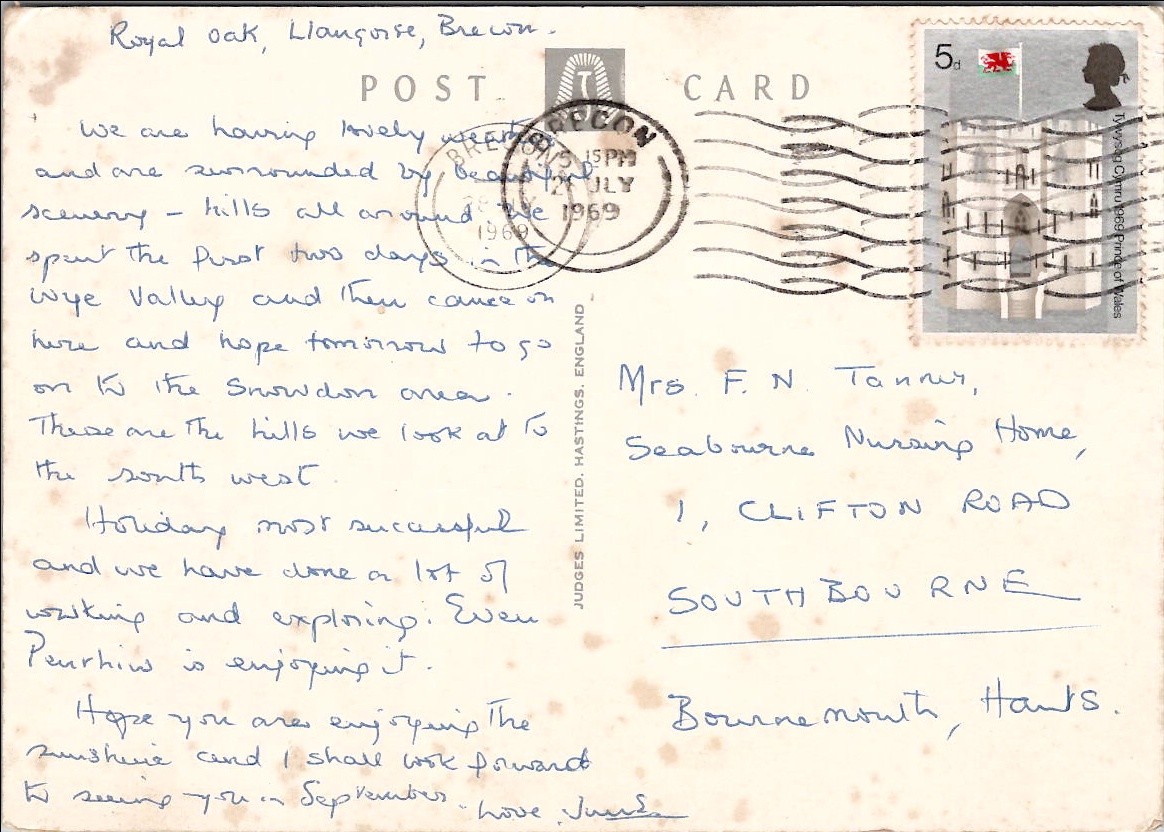 Royal Oak, Llangorse, Brecon.
POST CARD
We are having lovely weather
and are surrounded by beautiful
scenery – hills all around. We
spent the first two days in the
Wye Valley and then came on
here and hope tomorrow to go
on to the Snowdon area.
These are the hills we look at to
the south west.
Holiday most successful
and we have done a lot of
walking and exploring. Even
is enjoying it.
Hope you are enjoying the
sunshine and I shall look forward
to seeing you in September. Love
JUDGES LIMITED. HASTINGS. ENGLAND
BRECON
15 PM
JLY
1969
BRECON
1969
5d
Tywysog Cymru 1969 Prince of Wales
Mrs. F. N. Tanner,
Seabourne Nursing Home,
1, CLIFTON ROAD
SOUTHBOURNE
Bournemouth, Hants.